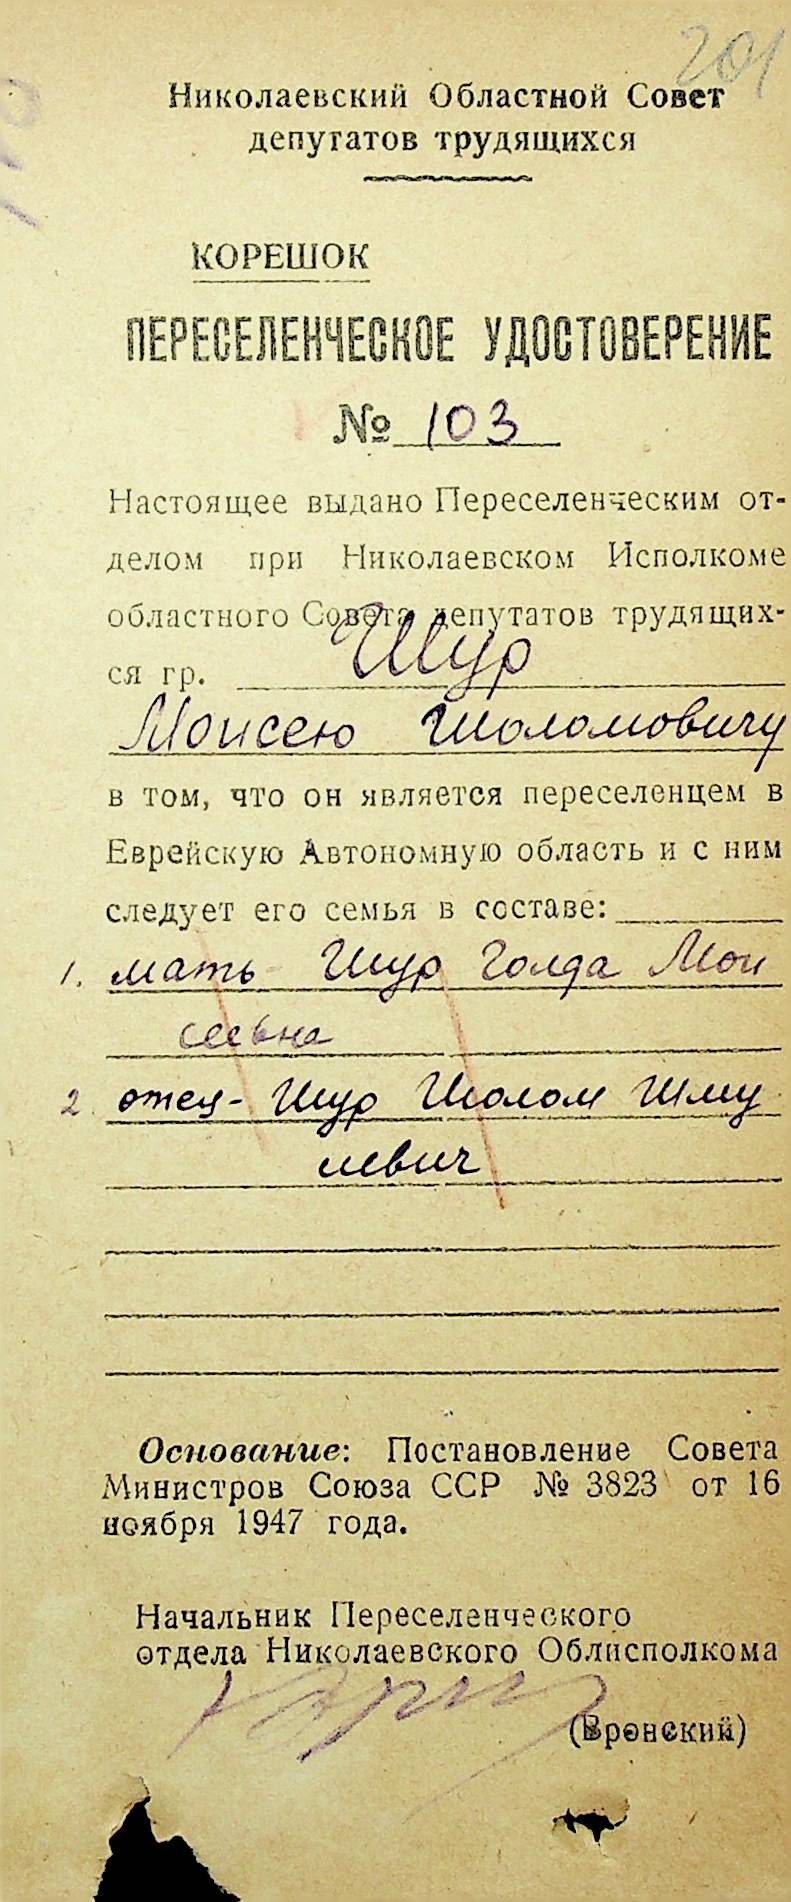 201
Николаевский Областной Совет
депутатов трудящихся
КОРЕШОК
ПЕРЕСЕЛЕНЧЕСКОЕ УДОСТОВЕРЕНИЕ
№ 103
Настоящее выдано Переселенческим от-
делом при Николаевском Исполкоме
областного Совета депутатов трудящих-
ся гр. Шур
Моисею Шоломовичу
в том, что он является переселенцем в
Еврейскую Автономную область и с ним
следует его семья в составе:
1. мать- Шур Голда Мои
сеевна
2 отец- Шур Шолом Шму
левич
Основание: Постановление Совета
Министров Союза ССР № 3823 от 16
ноября 1947 года.
Начальник Переселенческого
отдела Николаевского Облисполкома
(Вронский)